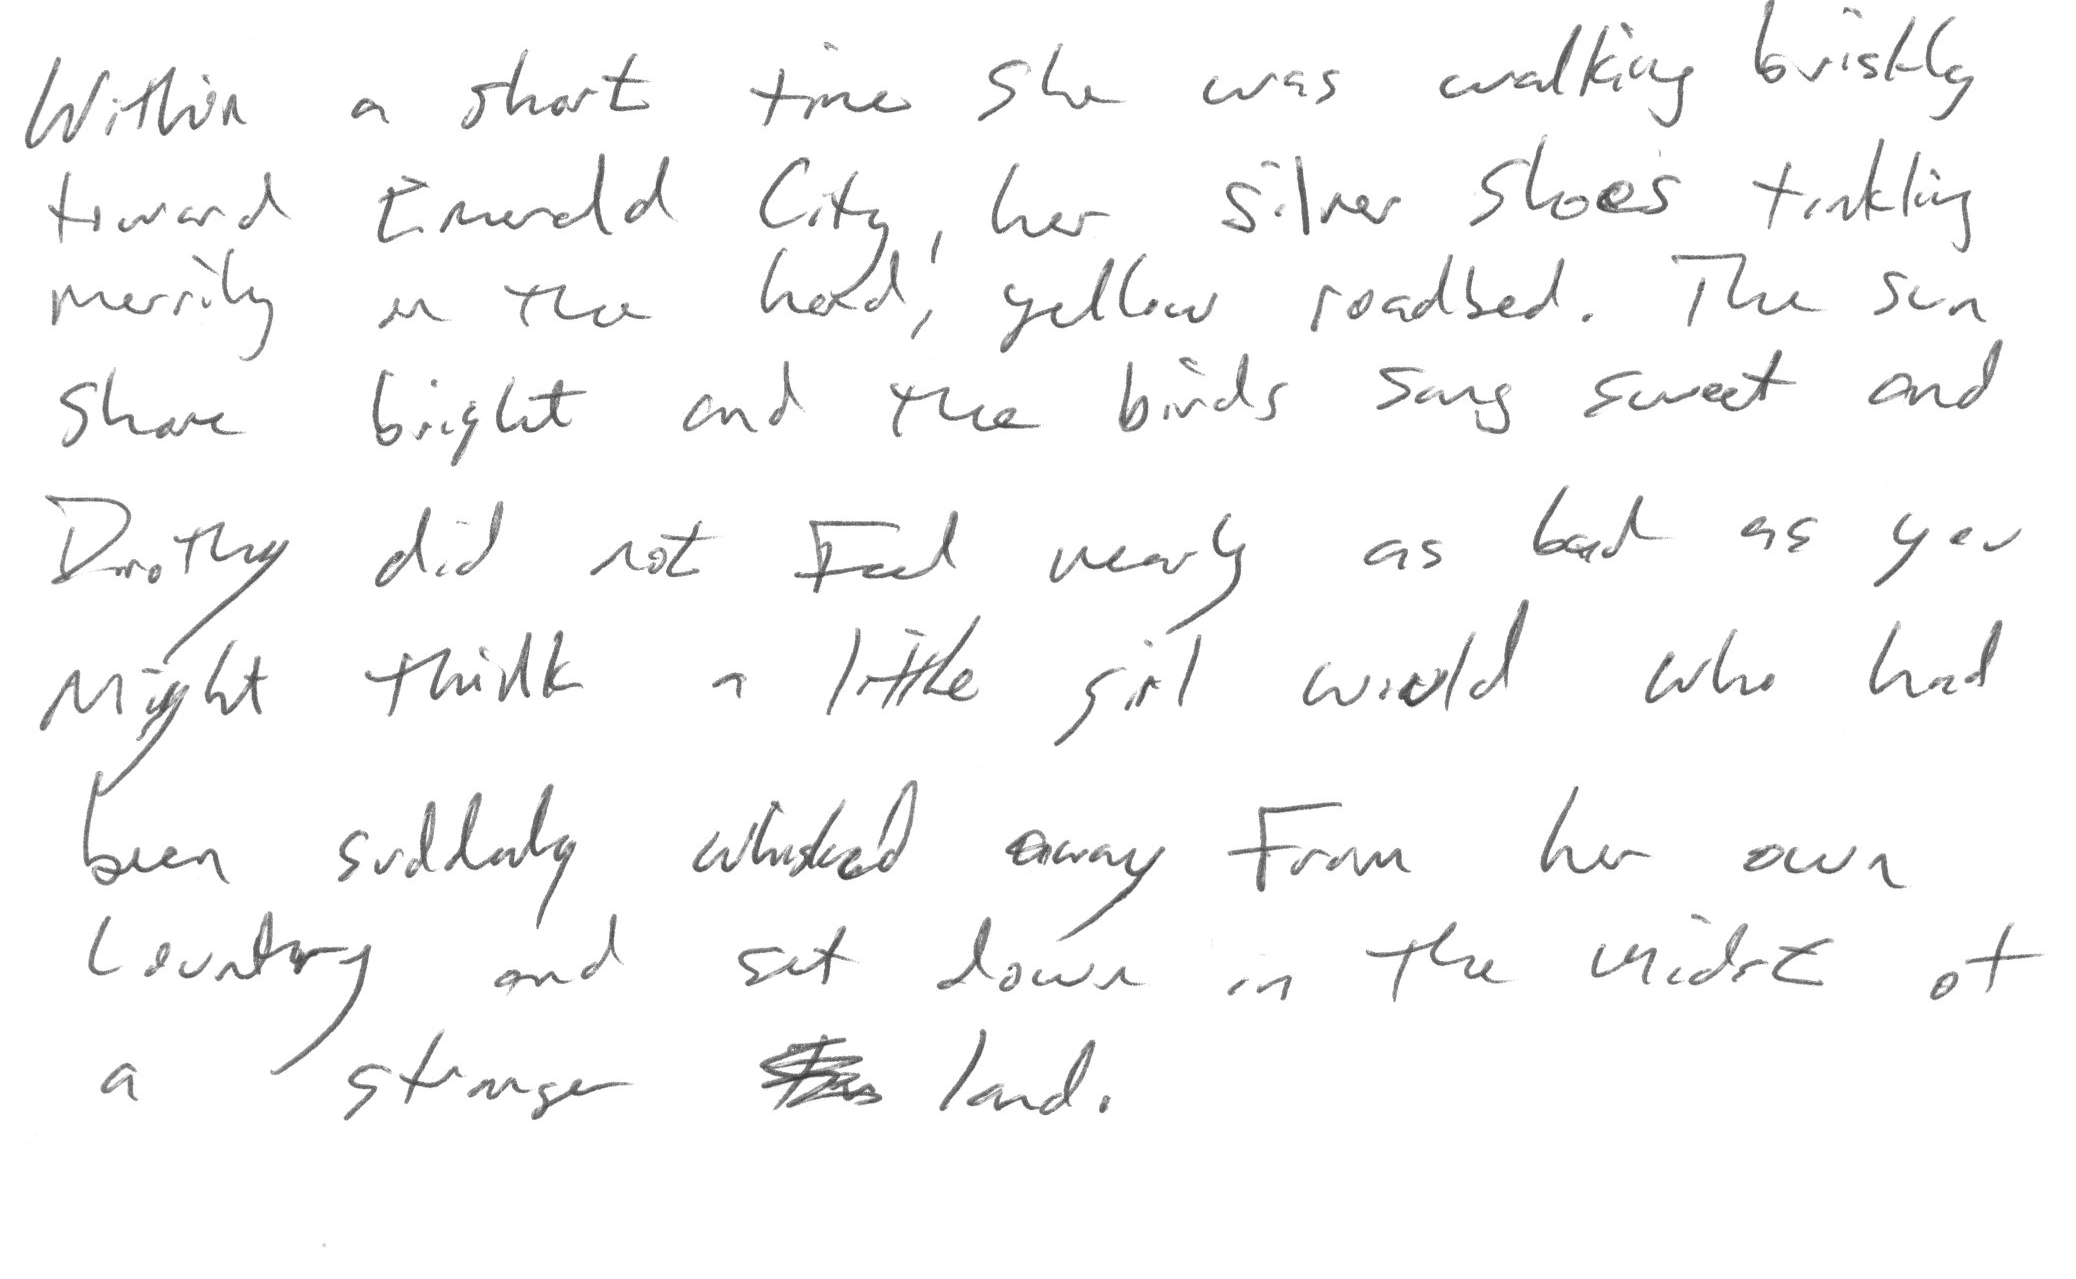 Within a short time she was walking briskly
toward Emerald City, her silver shoes tinkling
merrily on the hard, yellow roadbed. The sun
shone bright and the birds sang sweet and
Dorothy did not feel nearly as bad as you
might think a little girl would who had
been suddenly whisked away from her own
country and set down in the midst of
a strange land.